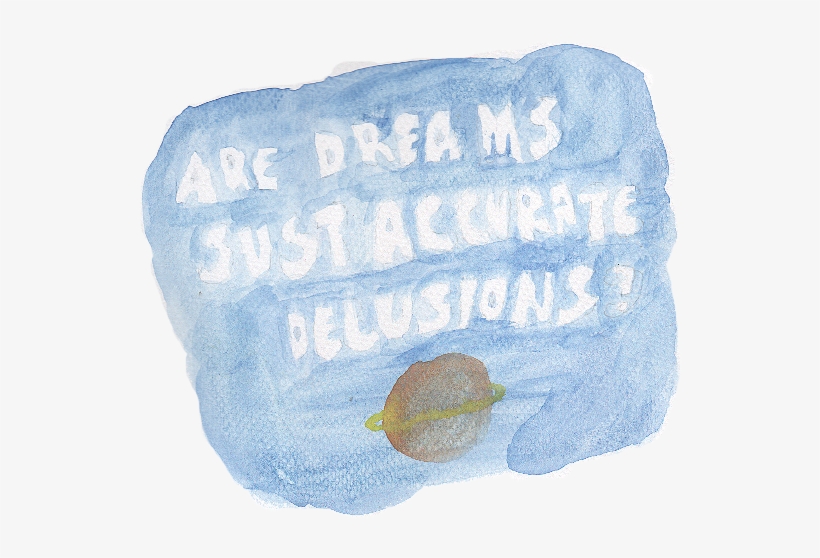 ARE DREAMS
JUST ACCURATE
DELUSIONS?